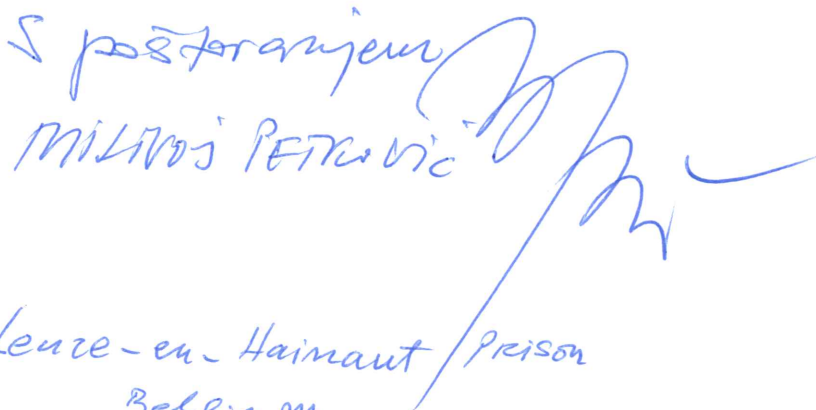 S poštovanjem
MILIVOJ PETKOVIĆ
Leuze-en-Hainaut Prison
Belgium